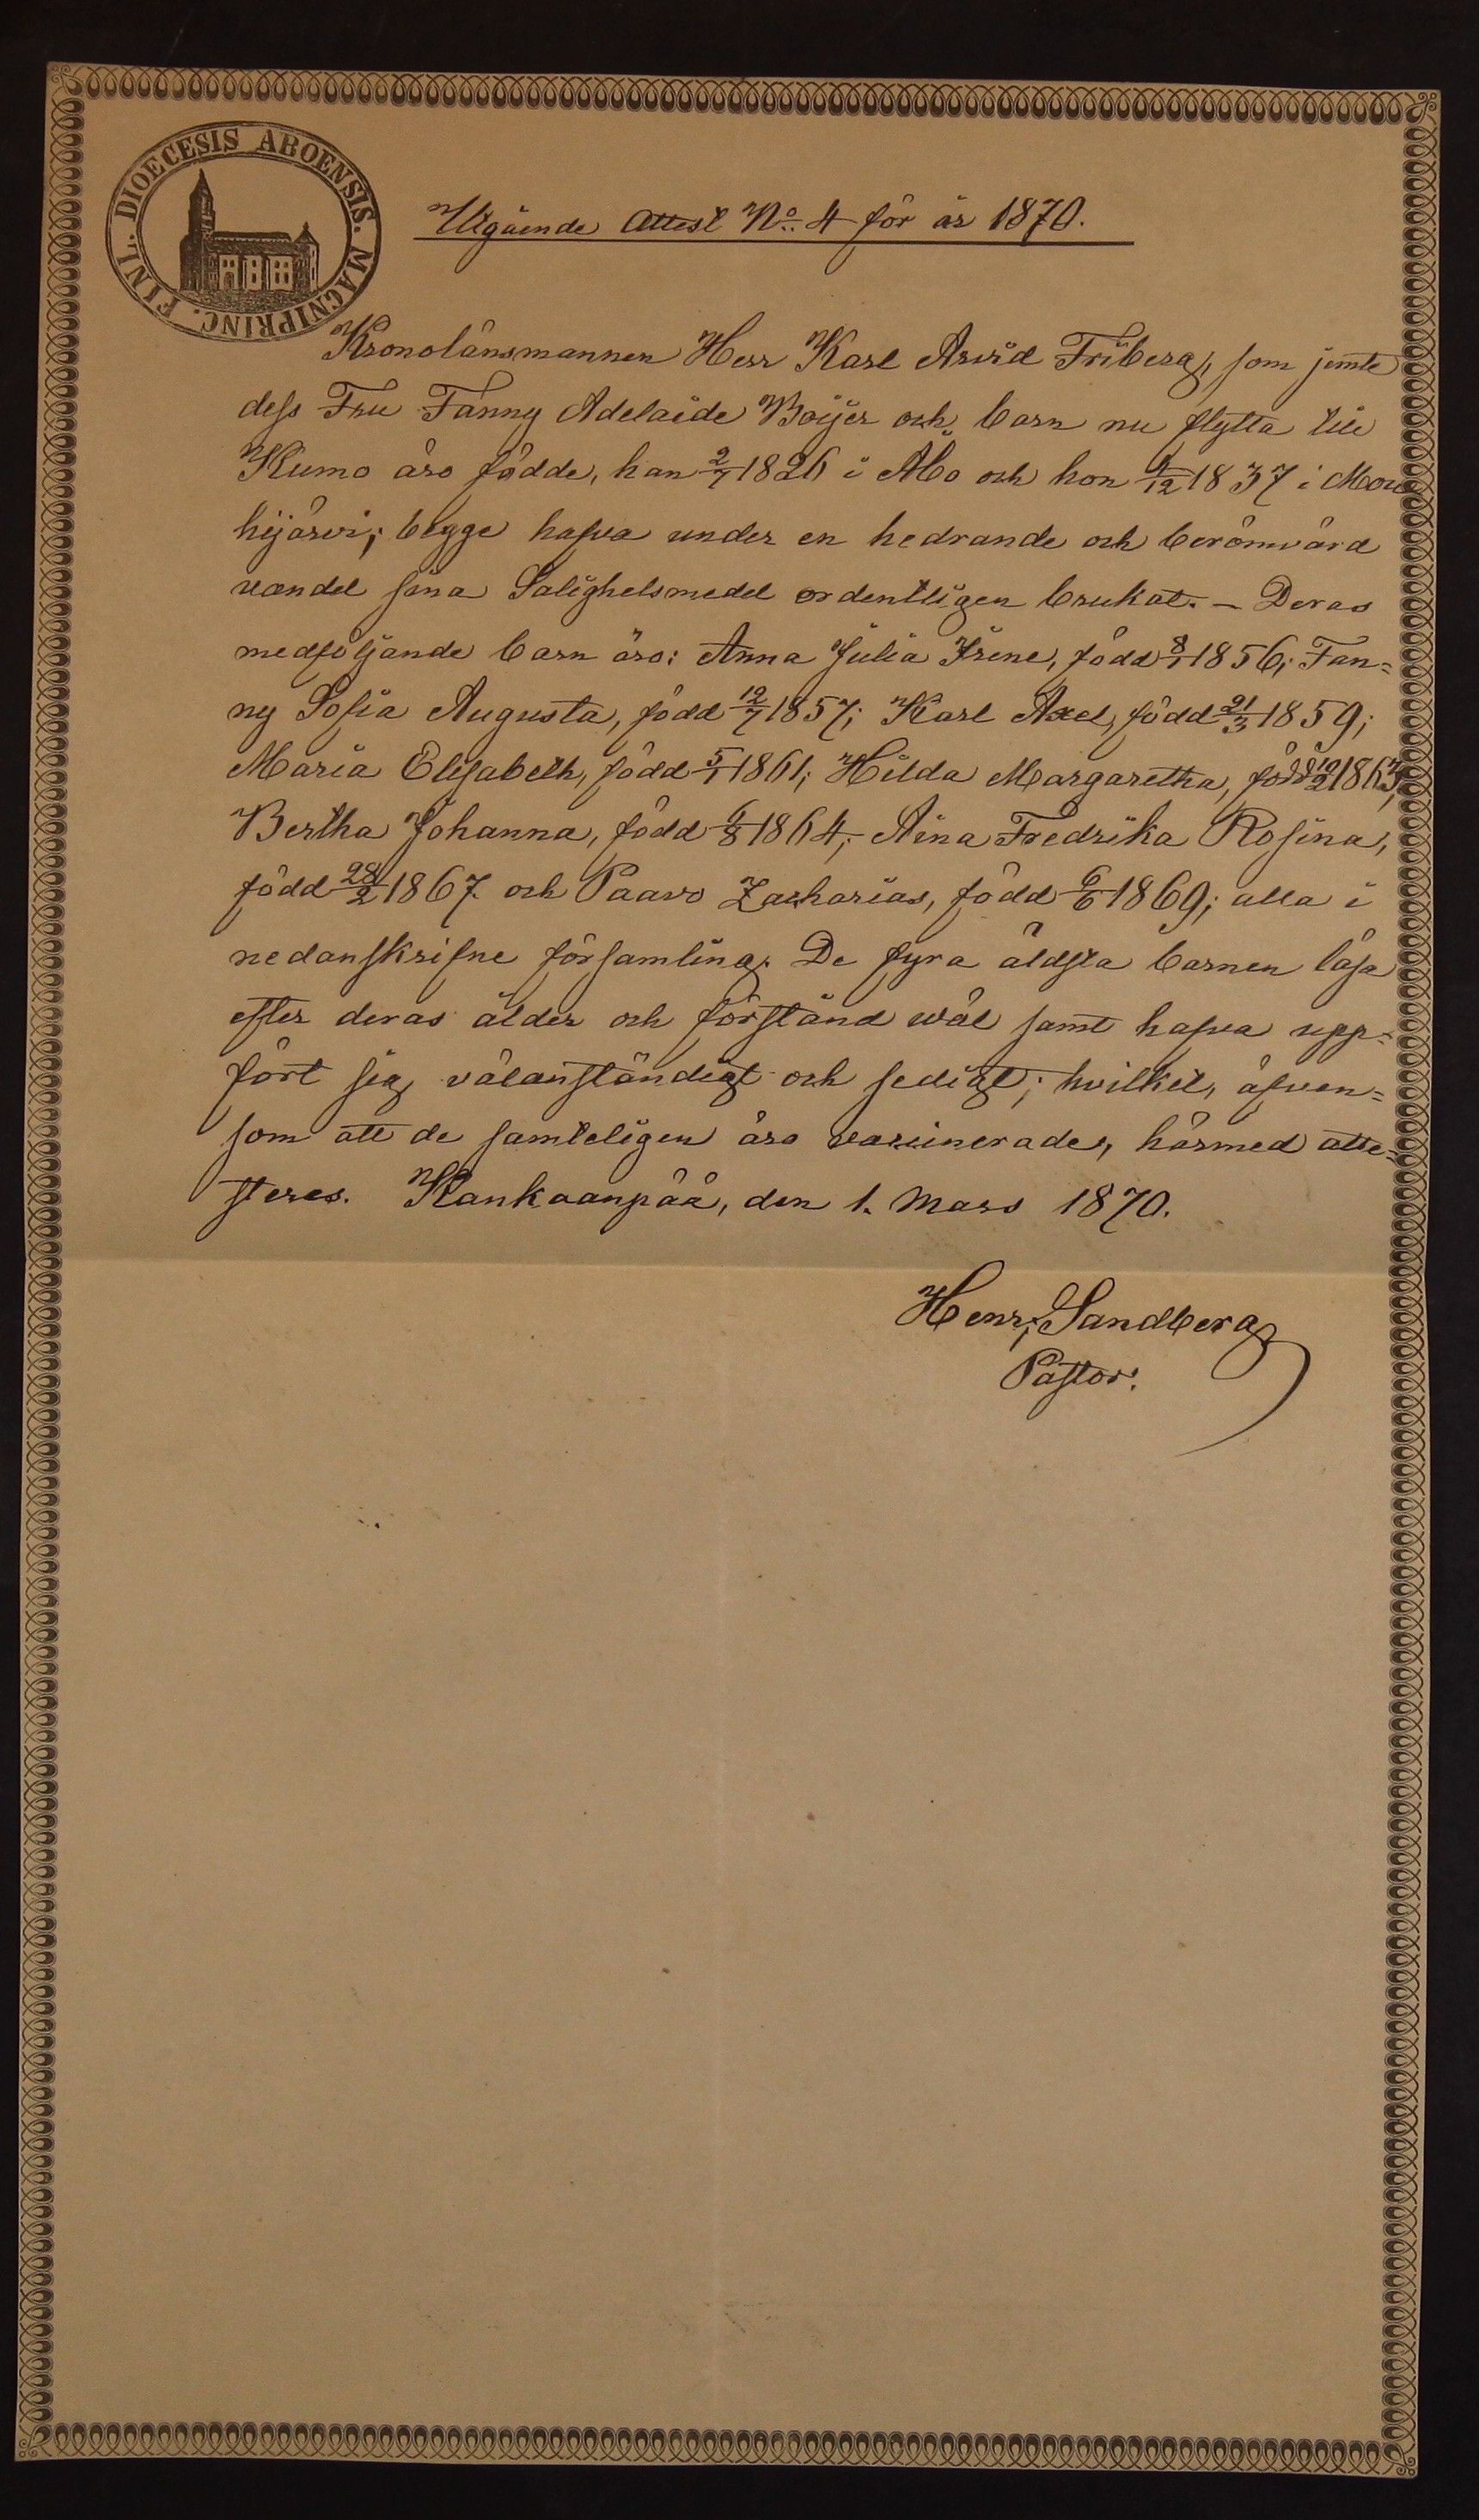 DIOECESIS ABOENSIS. MAGNIPRINC. FINL.
Utgående Attest No: 4 för år 1870.
Kronolänsmannen Herr Karl Arvid Friberg, som jemte
dess Fru Fanny Adelaide Boijer och barn nu flytta till
Kumo äro födde, han 2/7 1826 i Åbo och hon 4/12 1837 i Mou-
hijärvi; begge hafva under en hedrande och berömvärd
vandel sina Salighetsmedel ordentligen brukat. – Deras
medföljande barn äro: Anna Julia Irene, född 8/1 1856; Fan=
ny Sofia Augusta, född 12/7 1857; Karl Axel, född 21/3 1859;
Maria Elisabeth, född 5/1 1861; Hilda Margaretha, född 19/2 1863;
Bertha Johanna, född 6/8 1864; Aina Fredrika Rosina,
född 28/2 1867 och Paavo Zacharias, född 6/6 1869; alla i
nedanskrifne församling. De fyra äldsta barnen läsa
efter deras ålder och förstånd wäl samt hafva upp=
fört sig välanständigt och sedigt; hvilket, äfven=
som att de samteligen äro vaccinerade, härmed atte=
steras. Kankaanpää, den 1. Mars 1870.
Henr; Sandberg
Pastor.